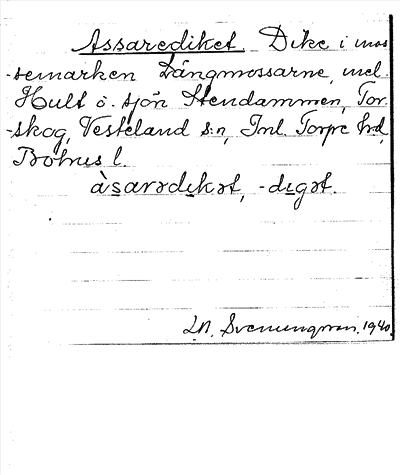 Assarediket. Dike i mos
-semarken Långmossarne, mel.
Hult o. sjön Stendammen, Tor.
-skog, Vesteland s:n, Inl. Torpe hrd,
Bohus l.
àsarədikət, -digət.
L.N. Svenungsson. 1940.